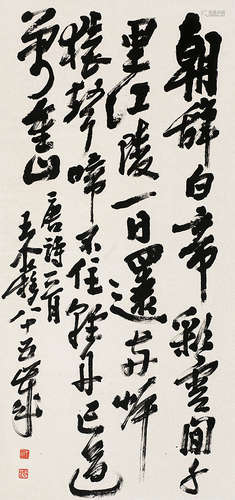 朝辭白帝彩雲間千
里江陵一日還兩岸
猿聲啼不住輕舟已過
萬重山
唐詩一首
王个簃八十五歲